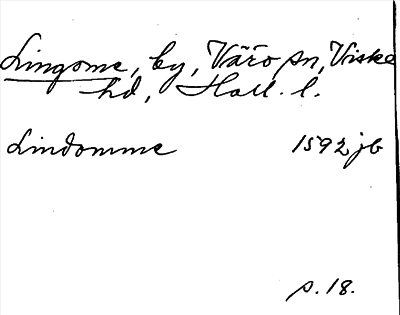 Lingome, by, Värö sn, Viske
hd, Hall. l.
Lindomme 1592 jb
s. 18.